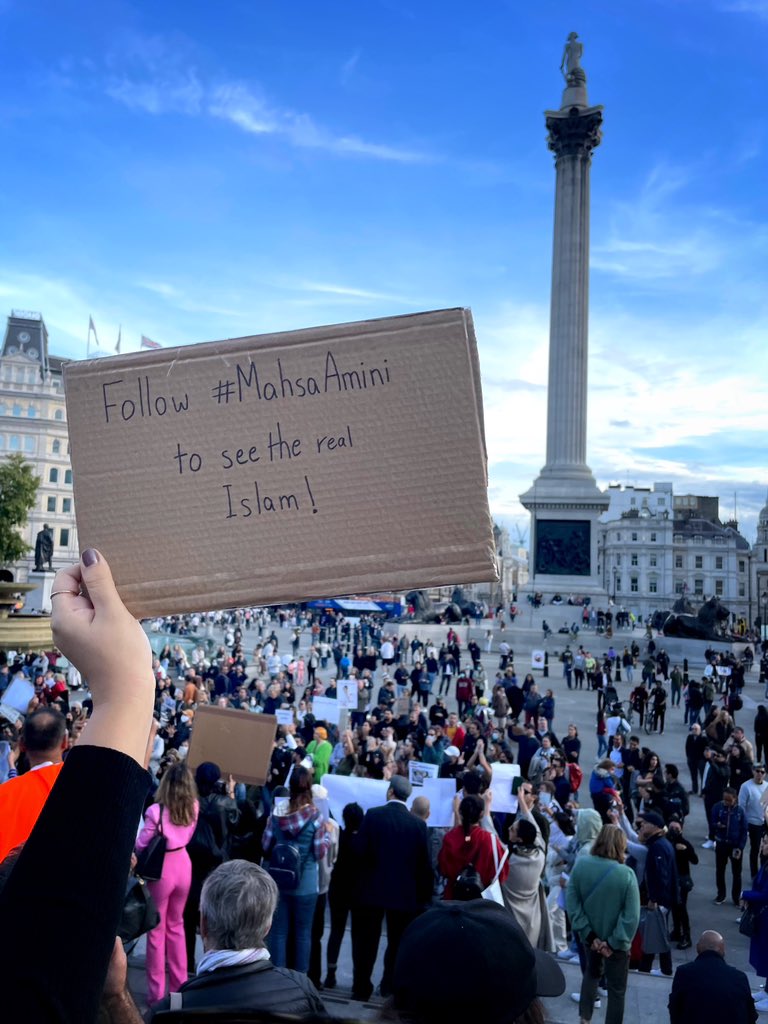 Follow #MahsaAmini
to see the real
Islam!